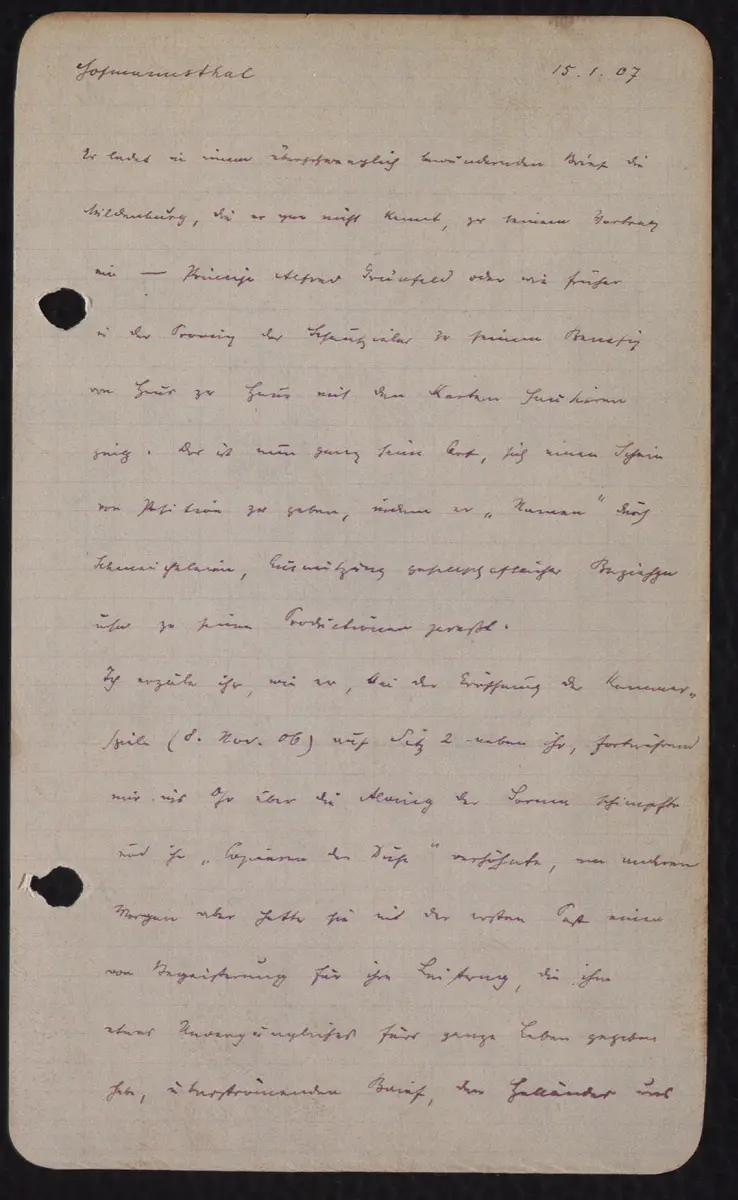 Hofmannsthal 15.1.07
Er ladet in einem überschwenglich bewundernden Brief die
Mildenburg, die er gar nicht kennt, zu seinem Vortrag
ein — Alfred Grünfeld oder wie früher
in der Provinz der Schauspieler zu seinem Benefiz
von Haus zu Haus mit den Karten hausieren
ging. Das ist nun ganz seine Art, sich einen Schein
von Position zu geben, indem er „Namen“ durch
Schmeicheleien, Ausnützung gesellschaftlicher
usw zu seinen Productionen presst.
Ich erzäle ihr, wie er, bei der Eröffnung der Kammer„
spiele (8. Nov. 06) auf Sitz 2 neben ihr, fortwährend
mir ins Ohr über die Alving der Sorma schimpfte
und ihr „Copieren der Duse“ verhöhnte, am anderen
Morgen aber hatte sie mit der ersten Post einen
von Begeisterung für ihre Leistung, die ihm
etwas Unvergängliches fürs ganze Leben gegeben
habe, überströmenden Brief, den Holländer uns